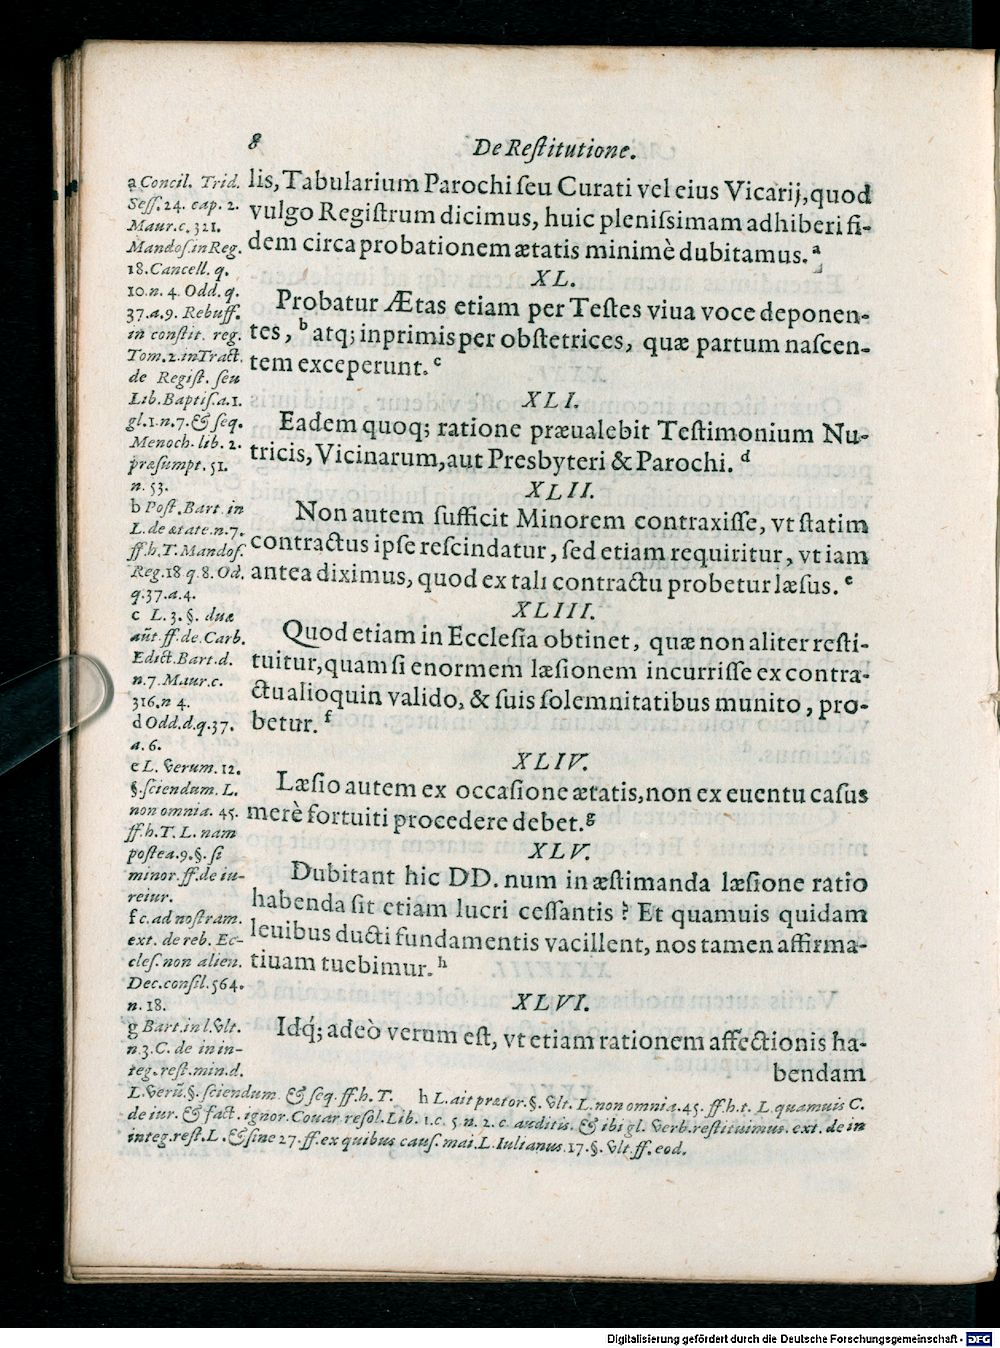 8 De Reſtitutione.
lis, Tabularium Parochi ſeu Curati vel eius Vicarij, quod
vulgo Regiſtrum dicimus, huic pleniſsimam adhiberi fi-
dem circa probationem ætatis minimè dubitamus. a
XL.
Probatur Ætas etiam per Teſtes viua voce deponen-
tes, b atq; inprimis per obſtetrices, quæ partum naſcen-
tem exceperunt. c
XLI.
Eadem quoq; ratione præualebit Teſtimonium Nu-
tricis, Vicinarum, aut Presbyteri & Parochi. d
XLII.
Non autem ſufficit Minorem contraxiſſe, vt ſtatim
contractus ipſe reſcindatur, ſed etiam requiritur, vt iam
antea diximus, quod ex tali contractu probetur læſus. e
XLIII.
Quod etiam in Eccleſia obtinet, quæ non aliter reſti-
tuitur, quam ſi enormem læſionem incurriſſe ex contra-
ctu alioquin valido, & ſuis ſolemnitatibus munito, pro-
betur. f
XLIV.
Læſio autem ex occaſione ætatis, non ex euentu caſus
merè fortuiti procedere debet. g
XLV.
Dubitant hic DD. num in æſtimanda læſione ratio
habenda ſit etiam lucri ceſſantis? Et quamuis quidam
leuibus ducti fundamentis vacillent, nos tamen affirma-
tiuam tuebimur. h
XLVI.
Idq́; adeò verum eſt, vt etiam rationem affectionis ha-
bendam
a Concil. Trid.
Seſſ. 24. cap. 2.
Maur. c. 321.
Mandoſ. in Reg.
18. Cancell. q.
10. n. 4. Odd. q.
37. a. 9. Rebuff.
in conſtit. reg.
Tom. 2. in Tract.
de Regiſt. ſeu
Lib. Baptiſ. a. 1.
gl. 1. n. 7. & ſeq.
Menoch. lib. 2.
præſumpt. 51.
n. 53.
b Poſt. Bart. in
L. de ætate. n. 7.
ff. h. T. Mandoſ.
Reg. 18 q. 8. Od.
q. 37. a. 4.
c L. 3. §. duæ
aūt. ff. de Carb.
Edict. Bart. d.
n. 7. Maur. c.
316. n 4.
d Odd. d. q. 37.
a. 6.
e L. verum. 12.
§. ſciendum. L.
non omnia. 45.
ff. h. T. L. nam
poſtea. 9. §. ſi
minor. ff. de iu-
reiur.
f c. ad noſtram.
ext. de reb. Ec-
cleſ. non alien.
Dec. conſil. 564.
n. 18.
g Bart. in l. vlt.
n. 3. C. de in in-
teg. reſt. min. d.
L. verū. §. ſciendum. & ſeq. ff. h. T. h L. ait prætor. §. vlt. L. non omnia. 45. ff. h. t. L. quamuis C.
de iur. & fact. ignor. Couar. reſol. Lib. 1. c. 5. n. 2. c. auditis. & ibi gl. verb. reſtituimus. ext. de in
integ. reſt. L. & ſine 27. ff. ex quibus cauſ. mai. L. Iulianus. 17. §. vlt ff. eod.
Digitalisierung gefördert durch die Deutsche Forschungsgemeinschaft - DFG